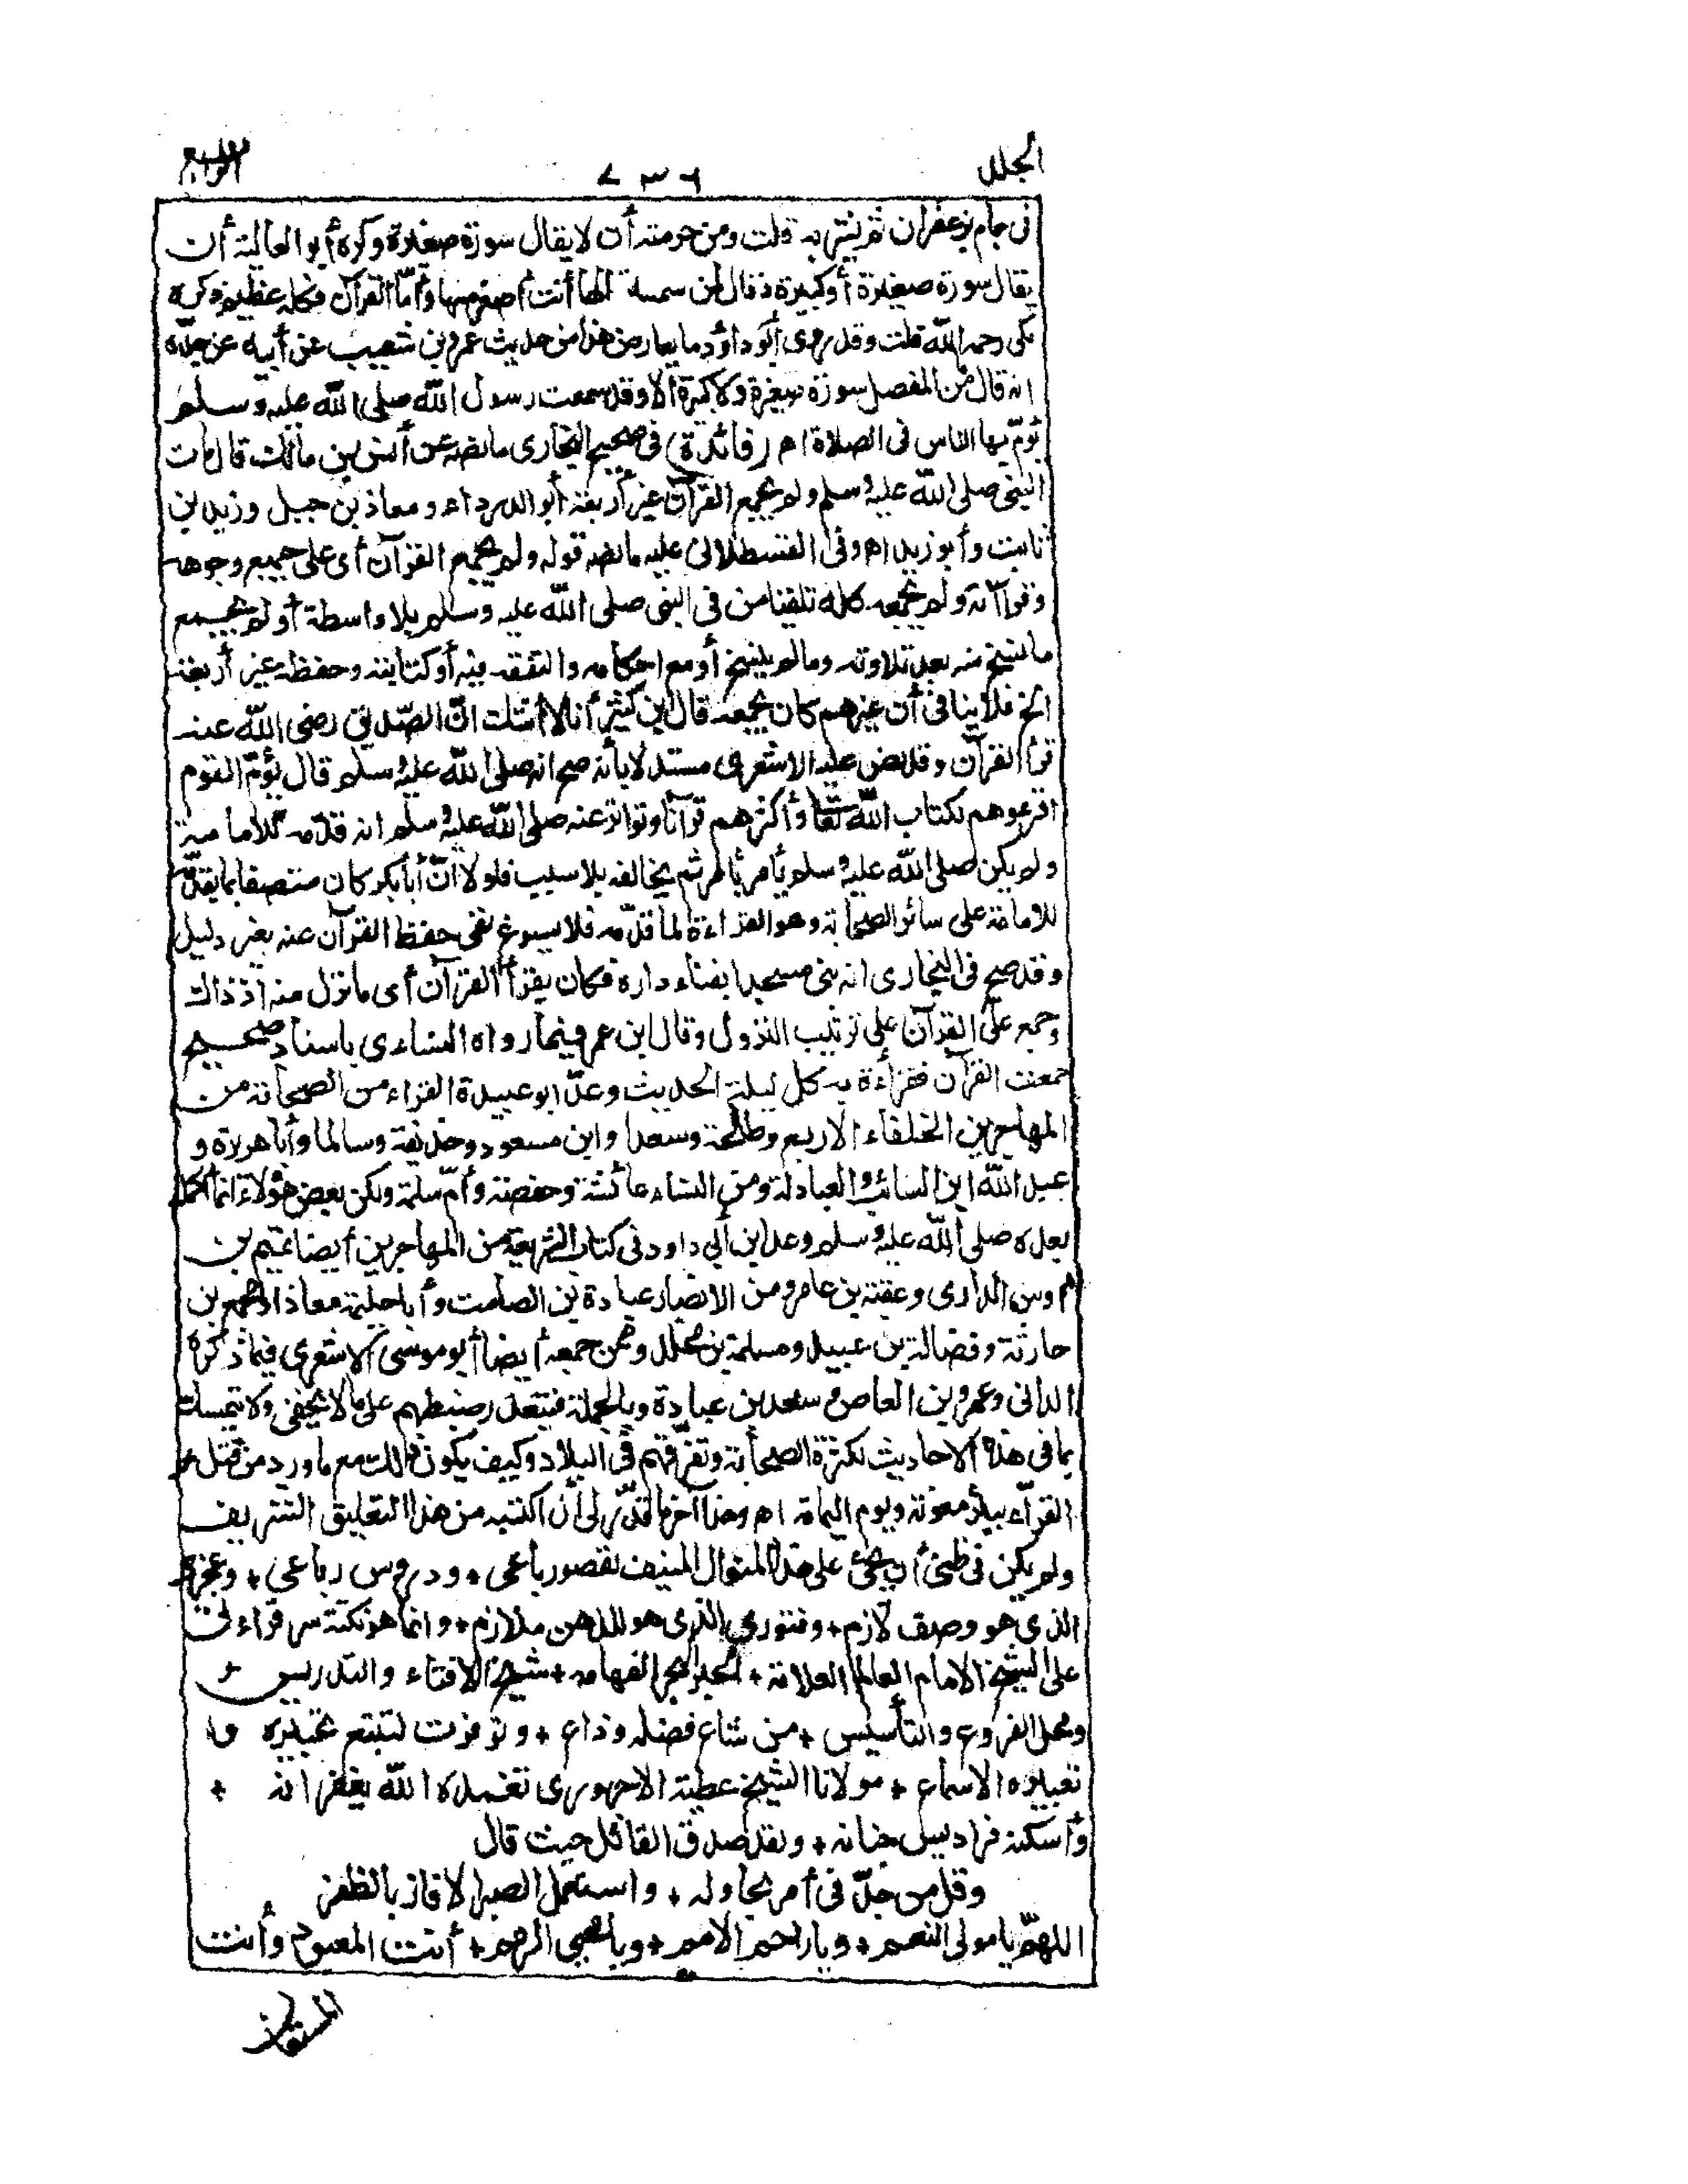 الجلد ٧٣٦ الرابع
فى جام بزعفران ثم يشربه قلت ومن حرمته أن لا يقال سورة صغيرة وكره أبو العالية أن
يقال سورة صغيرة أو كبيرة وقال لمن سمعه قالها أنت أصغر منها وأما القرآن فكله عظيم ذكره
مكى رحمه الله قلت وقد روى أبو داؤد ما يعارض هذا من حديث عمرو بن شعيب عن أبيه عن جدّه
انه قال من المفصل سورة صغيرة ولا كبيرة الا وقد سمعت رسول الله صلى الله عليه وسلم
يؤمّ بها الناس فى الصلاة اه (فائدة) فى صحيح البخارى ما نصه عن أنس بن مالك قال مات
النبى صلى الله عليه وسلم ولم يجمع القرآن غير أربعة أبو الدرداء ومعاذ بن جبل وزيد بن
ثابت وأبو زيد اه وفى القسطلانى عليه ما نصه قوله ولم يجمع القرآن أى على جميع وجوهه
وقراآته ولم يجمعه كله تلقيا من فى النبى صلى الله عليه وسلم بلا واسطة أو لم يجمع
ما نسخ منه بعد تلاوته وما لم ينسخ أو مع احكامه والتفقه فيه أو كتابته وحفظه غير أربعة
الخ فلا ينافى أن غيرهم كان يجمعه قال ابن كثير أنا لا أشك انّ الصّديق رضى الله عنه
قرأ القرآن وقد نص عليه الاشعرى مستدلا بأنه صح انه صلى الله عليه وسلم قال يؤمّ القوم
اقرءوهم لكتاب الله تعا وأكثرهم قرآنا وتواتر عنه صلى الله عليه وسلم انه قدّمه للامامة
ولم يكن صلى الله عليه وسلم يأمر بأمر ثم يخالفه بلا سبب فلولا انّ أبا بكر كان متصفا بما يقدّمه
للامامة على سائر الصحابة وهو القراءة لما قدّمه فلا يسوغ نفى حفظ القرآن عنه بغير دليل
وقد صح فى البخارى انه بنى مسجدا بفناء داره فكان يقرأ القرآن أى ما نزل منه اذ ذاك
وجمع علىّ القرآن على ترتيب النزول وقال ابن عمر فيما رواه النسائى باسناد صحيح
جمعت القرآن فقرأت به كل ليلة الحديث وعدّ ابو عبيدة القراء من الصحابة من
المهاجرين الخلفاء الاربع وطلحة وسعدا وابن مسعود وحذيفة وسالما وأبا هريرة و
عبد الله ابن السائب والعبادلة ومن النساء عائشة وحفصة وأمّ سلمة ولكن بعض هؤلاء انما أكمله
بعده صلى الله عليه وسلم وعد ابن أبى داود فى كتاب الشريعة من المهاجرين أيضا تميم بن
أوس الدارى وعقبة بن عامر ومن الانصار عبادة بن الصامت وأبا حليمة معاذا ومجمع بن
حارثة وفضالة بن عبيد ومسلمة بن مخلد وممن جمعه أيضا أبو موسى الاشعرى فيما ذكره
الدانى وعمرو بن العاص وسعد بن عبادة وبالجملة فيتعذر ضبطهم على ما لا يخفى ولا يتمسك
بما فى هذه الاحاديث لكثرة الصحابة وتفرّقهم فى البلاد وكيف يكون ذلك مع ما ورد من قتل
القرّاء ببئر معونة ويوم اليمامة اه وهذا آخر ما قدّر لى أن اكتبه من هذا التعليق الشريف
ولم يكن فى ظنى أن يجئ على هذا المنوال المنيف لقصور باعى + ودروس رباعى + وعجزى
الذى هو وصف لازم + وفتورى الذى هو للذهن ملازم + وانما هو نكتة سر قراءتى
على الشيخ الامام العالم العلامة + الحبر البحر الفهامه + شيخ الافتاء والتدريس +
ومحل الفروع والتأسيس + من شاع فضله وذاع + وتوفرت لتتبع تحبيره و
تعبيره الاسماع + مولانا الشيخ عطية الاجهورى تغمده الله بغفرانه +
وأسكنه فراديس جنانه + ولقد صدق القائل حيث قال
وقل من جدّ فى أمر يحاوله + واستعمل الصبر الا فاز بالظفر
اللهمّ يا مولى النعم + ويا راحم الامم + ويا محيى الرمم + أنت المعبود وأنت